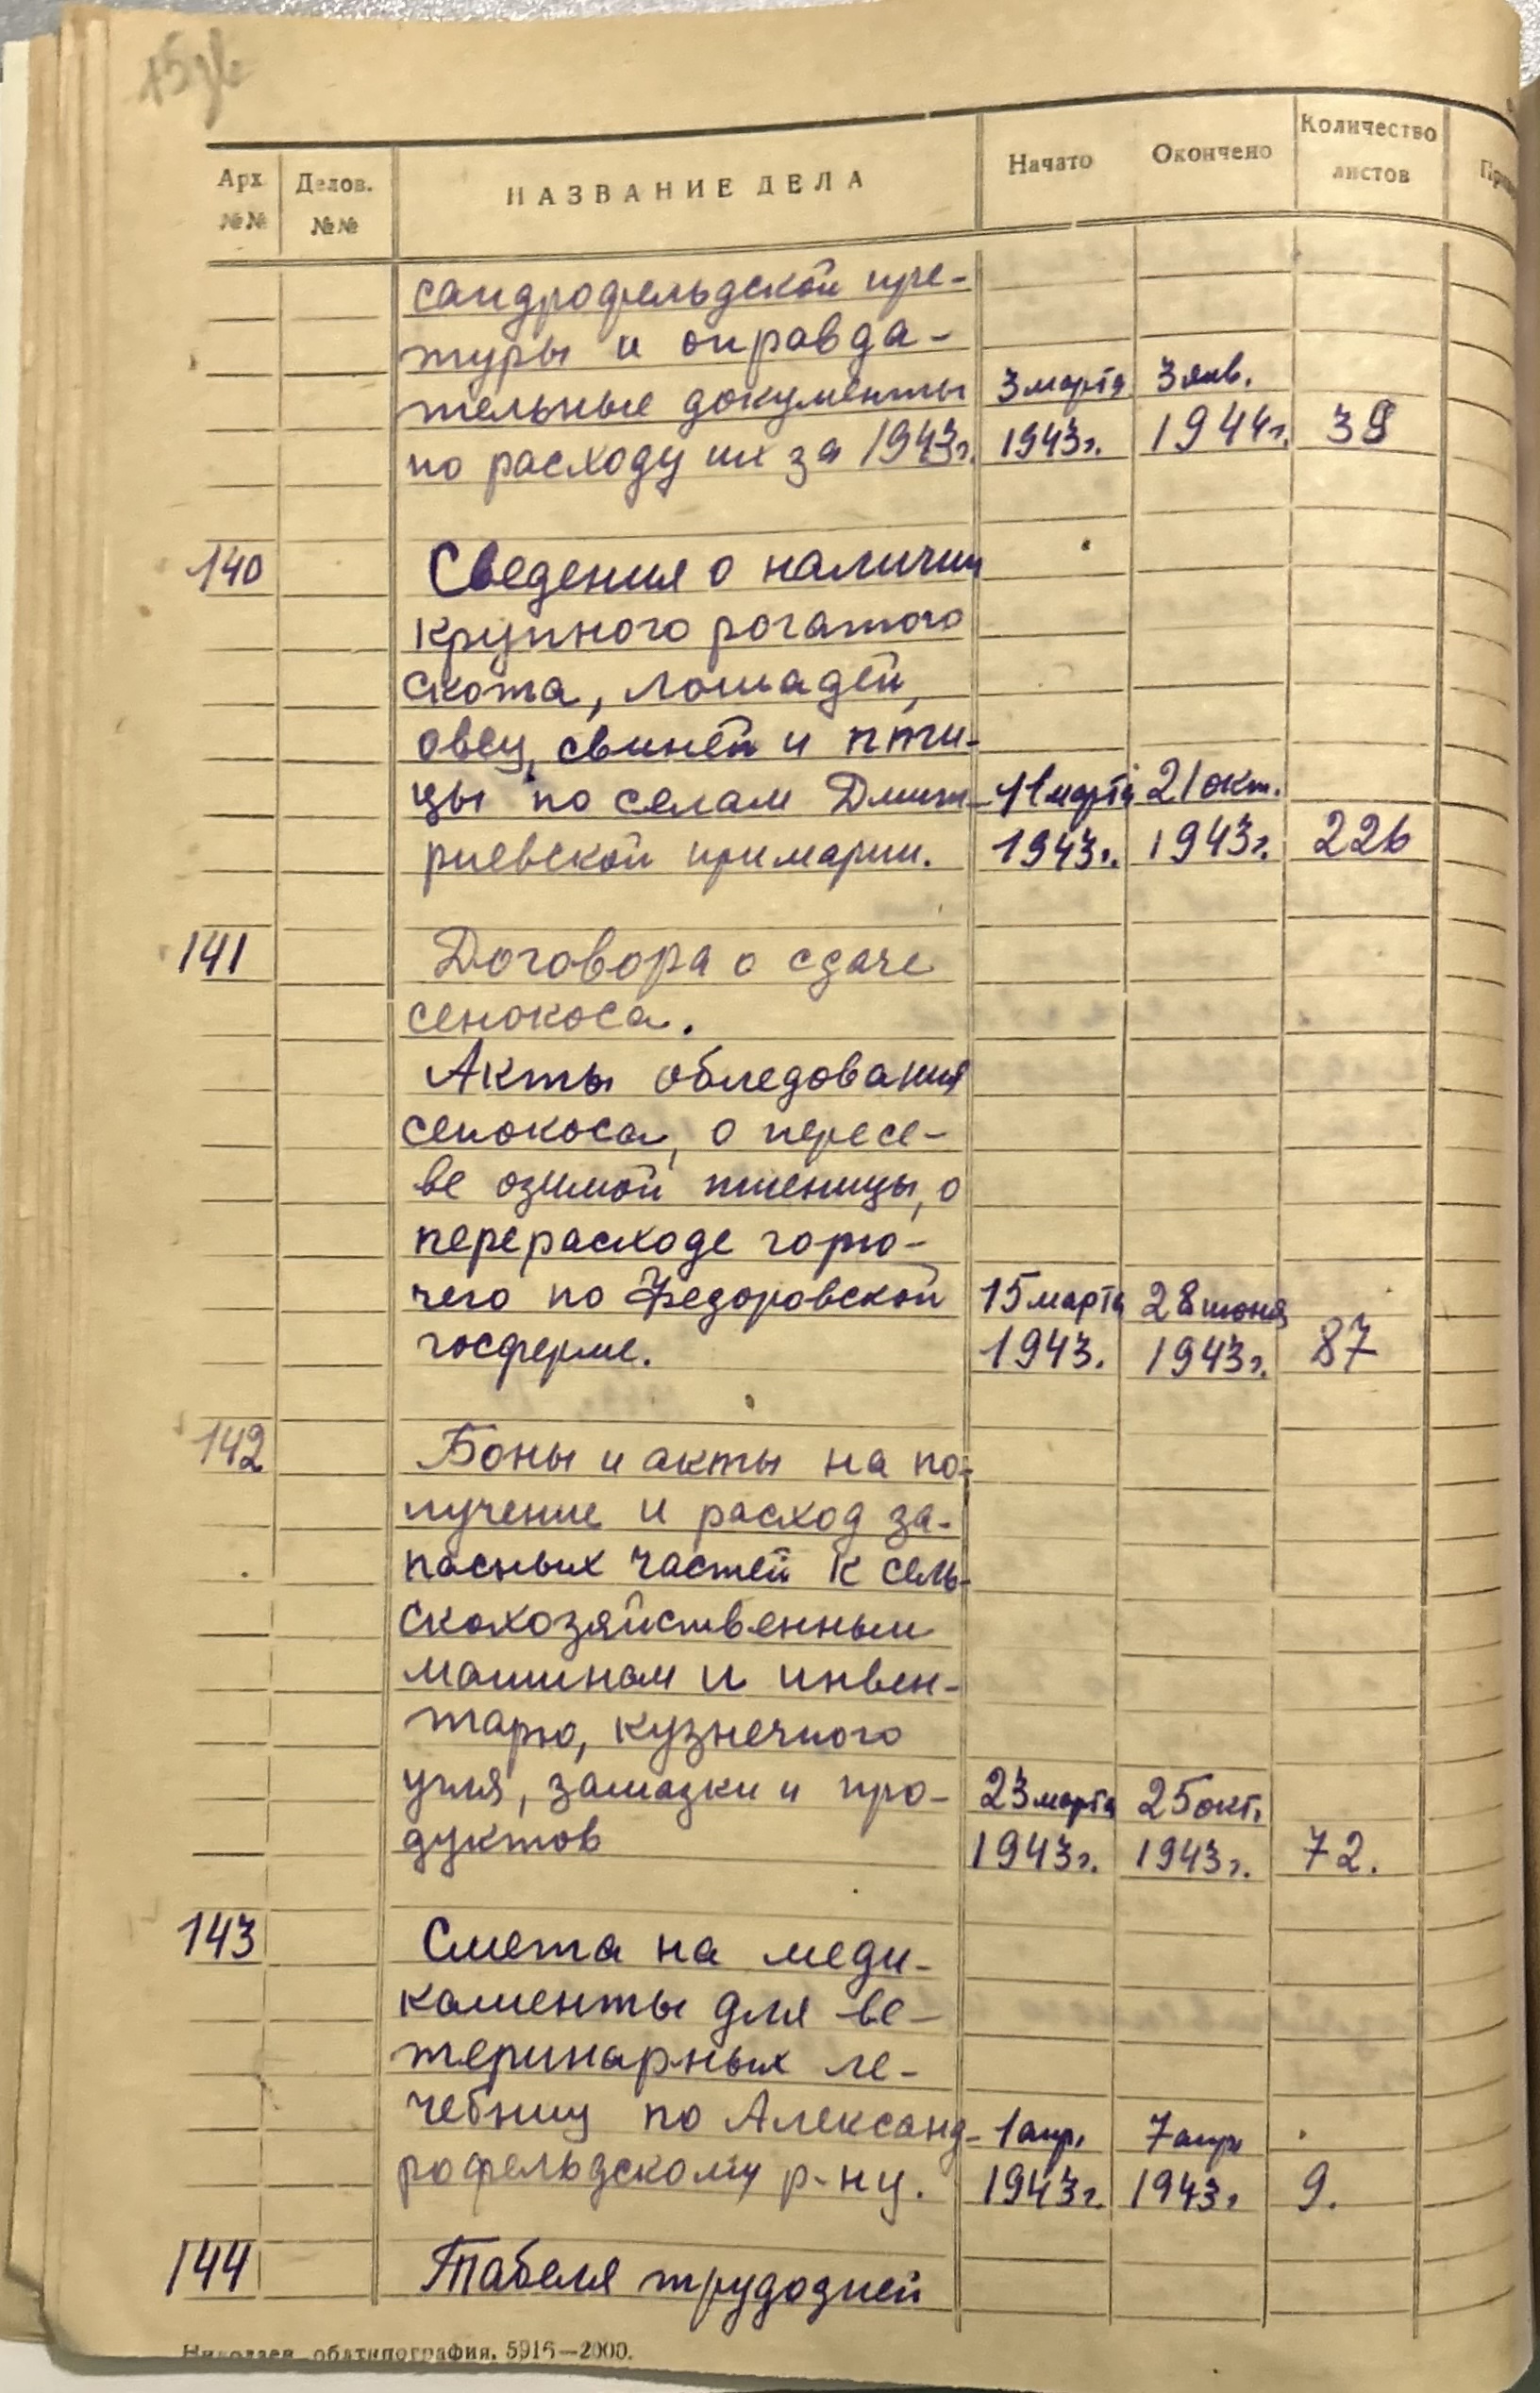 Арх №№ Делов. №№ НАЗВАНИЕ ДЕЛА Начато Окончено Количество листов
сандрофельдской пре-
туры и оправда-
тельные документы 3 марта 3 янв.
по расходу их за 1943г. 1943г. 1944г. 39
140 Сведения о наличии
крупного рогатого
скота, лошадей,
овец, свиней и пти-
цы по селам Дмит- 11 марта 21 окт.
риевской примарии. 1943г. 1943г. 226
141 Договора о сдаче
сенокоса.
Акты обледования
сенокоса, о пересе-
ве озимой пшеницы, о
перерасходе горю-
чего по Федоровской 15 марта 28 июня
госферме. 1943. 1943г. 87
142 Боны и акты на по-
лучение и расход за-
пасных частей к сель-
скохозяйственным
машинам и инвен-
тарю, кузнечного
угля, замазки и про- 23 марта 25 окт.
дуктов 1943г. 1943г. 72.
143 Смета на меди-
каменты для ве-
теринарных ле-
чебниц по Александ- 1 апр. 7 апр.
рофельдскому р-ну. 1943г. 1943г. 9.
144 Табеля трудодней
Николаев, облтипография. 5916—2000.